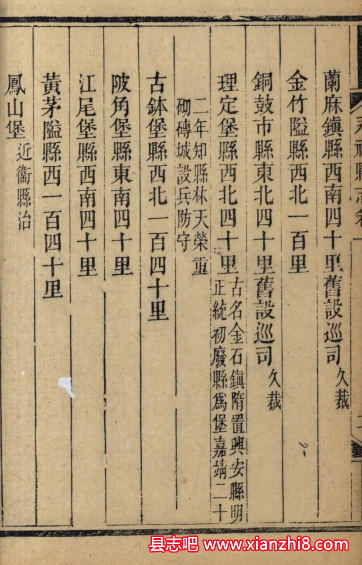 蘭麻鎮縣西南四十里舊設巡司久裁
金竹隘縣西北一百里
銅鼓市縣東北四十里舊設巡司久裁
理定堡縣西北四十里古名金石鎮隋置興安縣明
正統初廢縣爲堡嘉靖二十
二年知縣林天榮重
砌磚城設兵防守
古鉢堡縣西北一百四十里
陂角堡縣東南四十里
江尾堡縣西南四十里
黃茅隘縣西一百四十里
鳳山堡近衝縣治
县志吧 www.xianzhi8.com